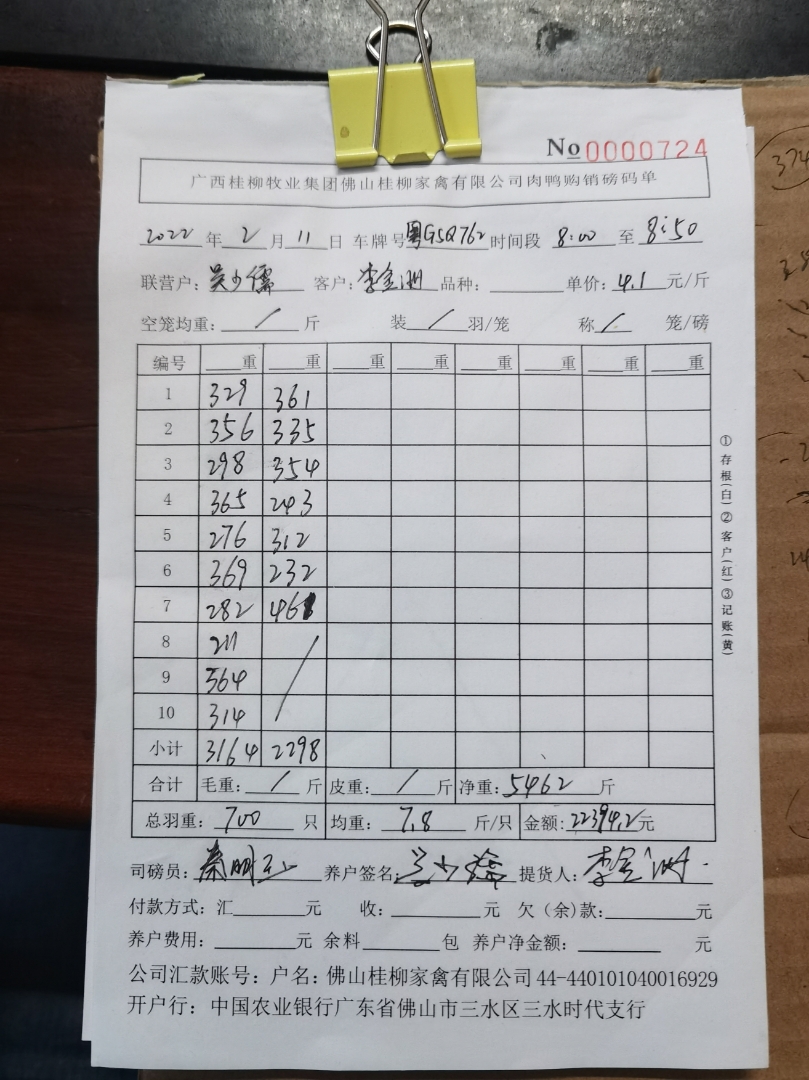 No 0000724
广西桂柳牧业集团佛山桂柳家禽有限公司肉鸭购销磅码单
2022 年 2 月 11 日 车牌号 粤G5Q762 时间段 8:00 至 8:50
联营户: 吴少儒 客户: 李金洲 品种: 单价: 4.1 元/斤
空笼均重: / 斤 装 / 羽/笼 称 / 笼/磅
编号 重 重 重 重 重 重 重 重
1 329 361
2 356 335
3 298 354
4 365 243
5 276 312
6 369 232
7 282 461
8 211 /
9 364
10 314
小计 3164 2298
合计 毛重: / 斤 皮重: / 斤 净重: 5462 斤
总羽重: 700 只 均重: 7.8 斤/只 金额: 22394.2 元
司磅员: 养户签名: 吴少儒 提货人: 李金洲
付款方式: 汇 元 收: 元 欠（余）款: 元
养户费用: 元 余料 包 养户净金额: 元
公司汇款账号: 户名: 佛山桂柳家禽有限公司 44-440101040016929
开户行: 中国农业银行广东省佛山市三水区三水时代支行
①存根(白)②客户(红)③记账(黄)